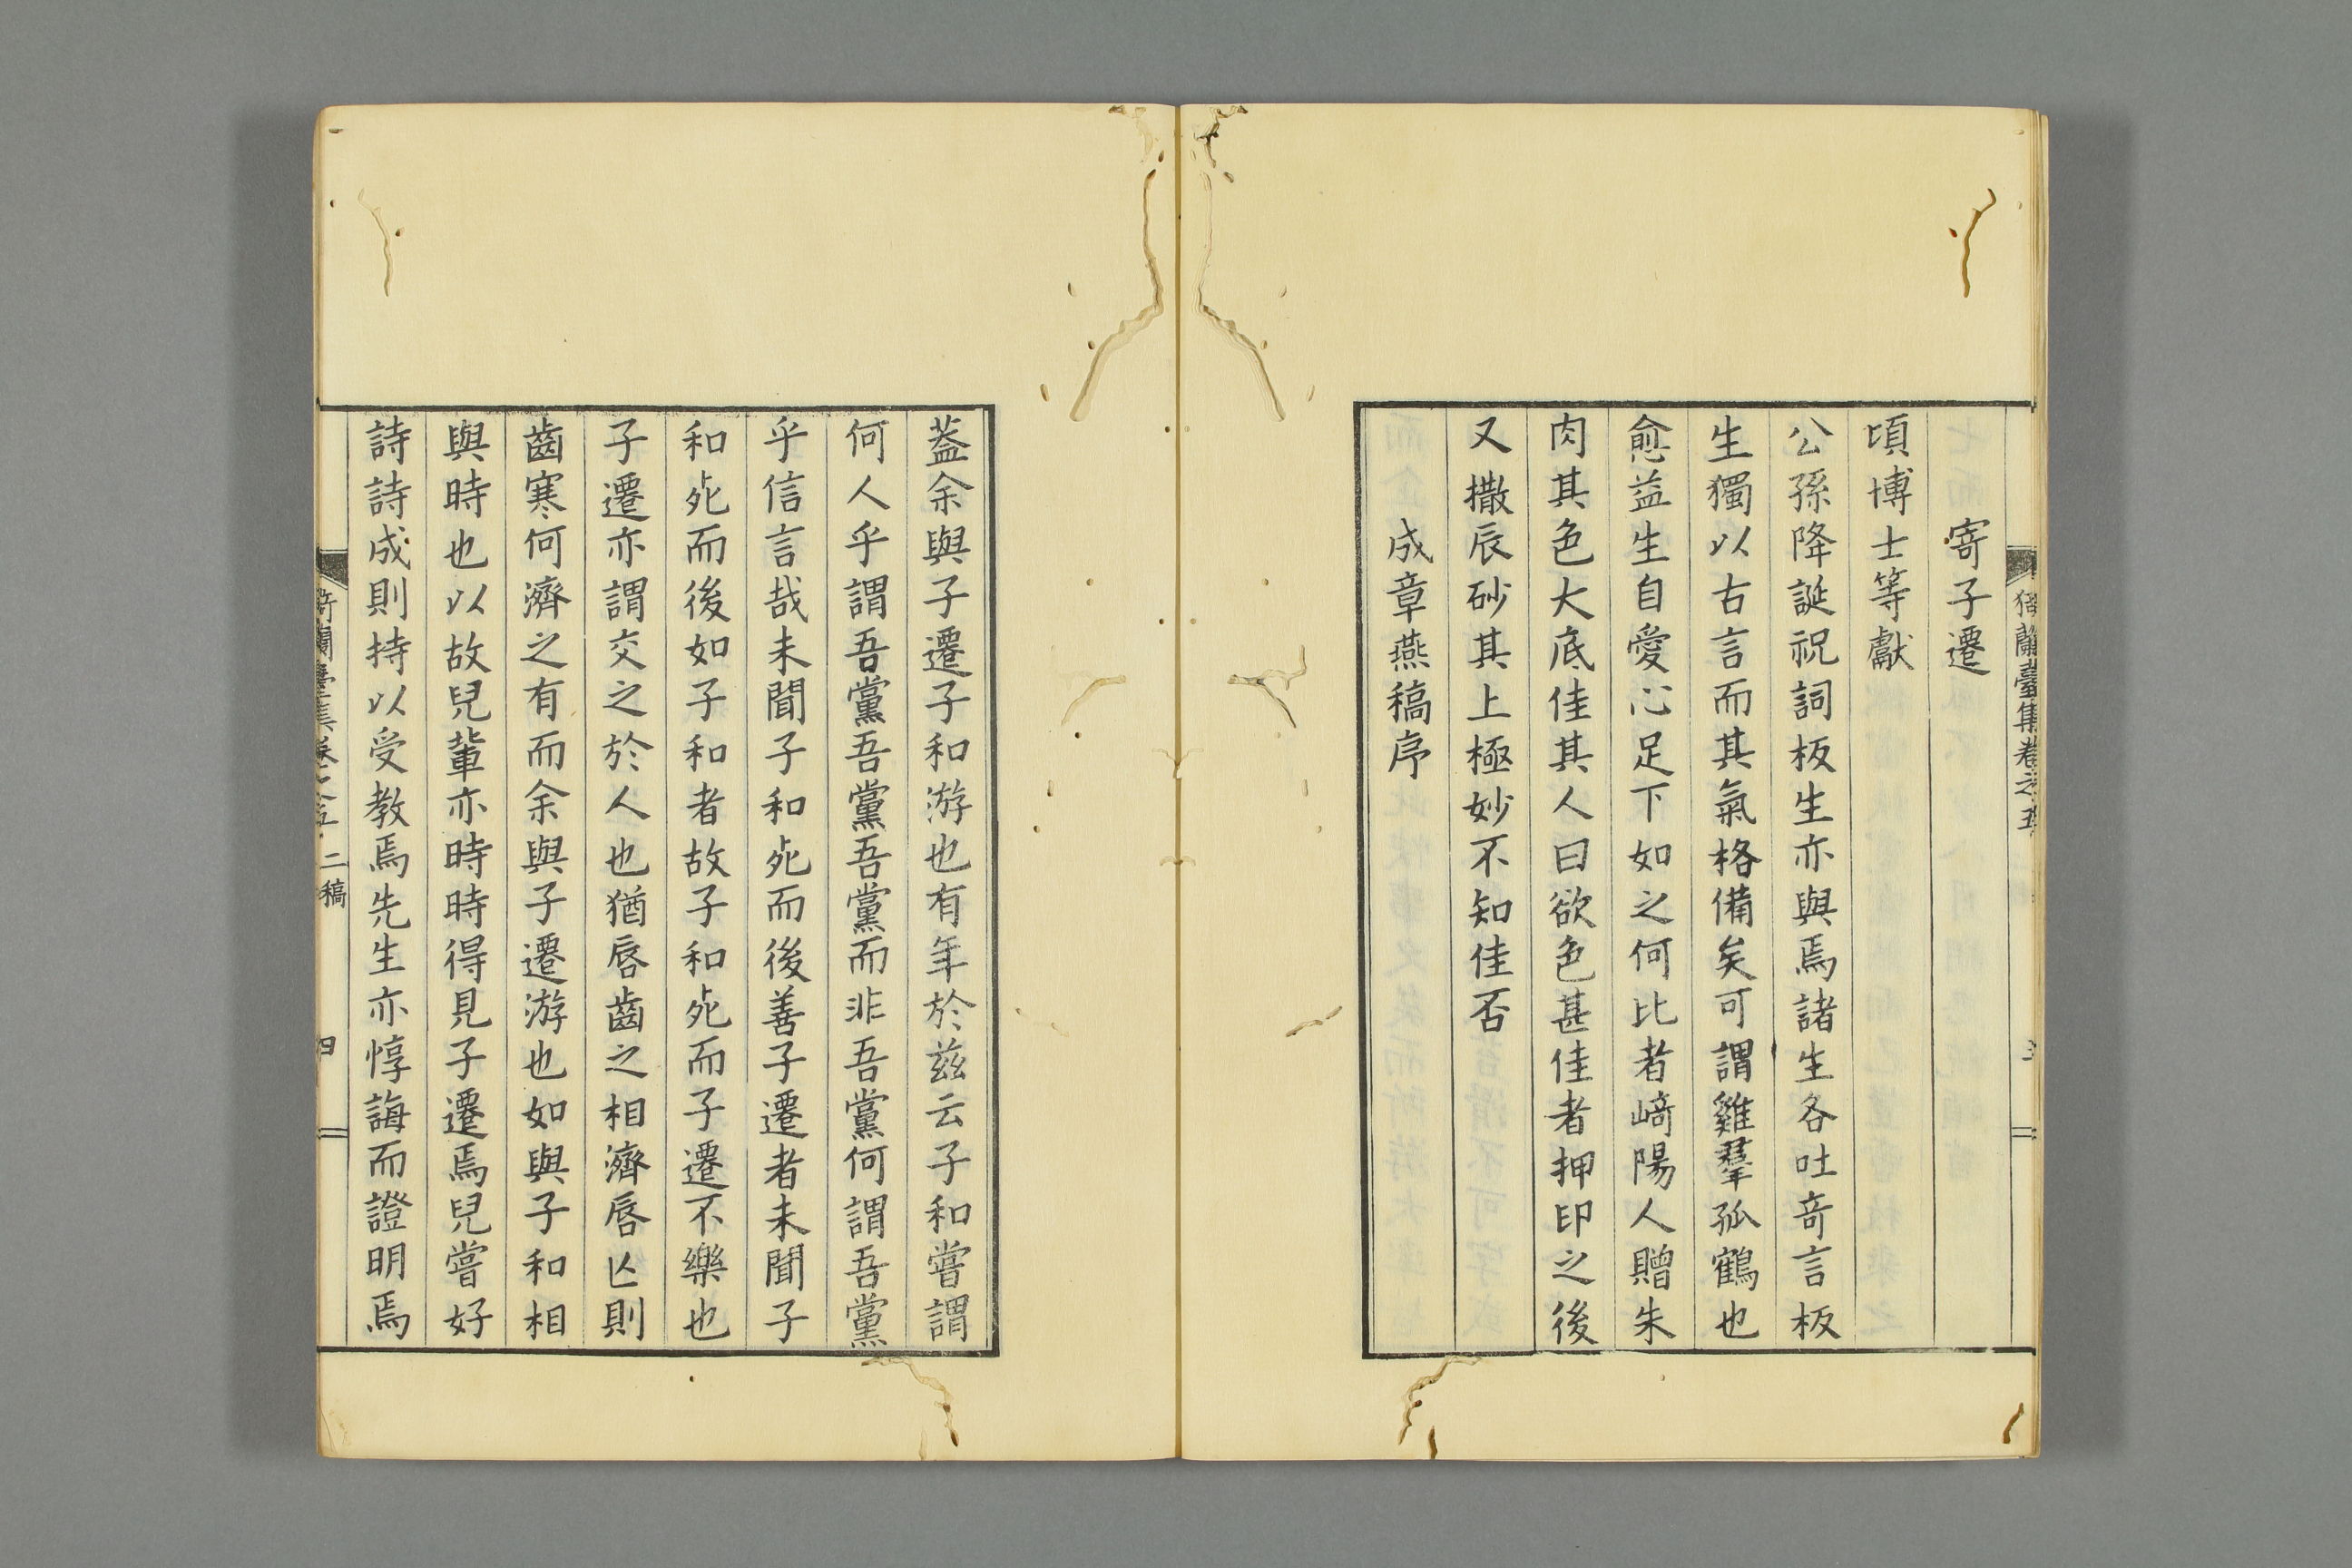 寄子遷
頃博士等獻
公孫降誕祝詞板生亦與焉諸生各吐奇言板
生獨以古言而其氣格備矣可謂雞羣孤鶴也
愈益生自愛心足下如之何比者﨑陽人贈朱
肉其色大底佳其人曰欲色甚佳者押印之後
又撒辰砂其上極妙妙不知佳否
成章燕稿序
蓋余與子遷子和游也有年於茲云子和嘗謂
何人乎謂吾黨吾黨吾黨而非吾黨何謂吾黨
乎信言哉未聞子和死而後善子遷者未聞子
和死而後如子和者故子和死而子遷不樂也
子遷亦謂交之於人也猶唇齒之相濟唇亾則
齒寒何濟之有而余與子遷游也如與子和相
與時也以故兒輩亦時時得見子遷焉兒嘗好
詩詩成則持以受教焉先生亦惇誨而證明焉
蘭臺集卷之五 二稿 四